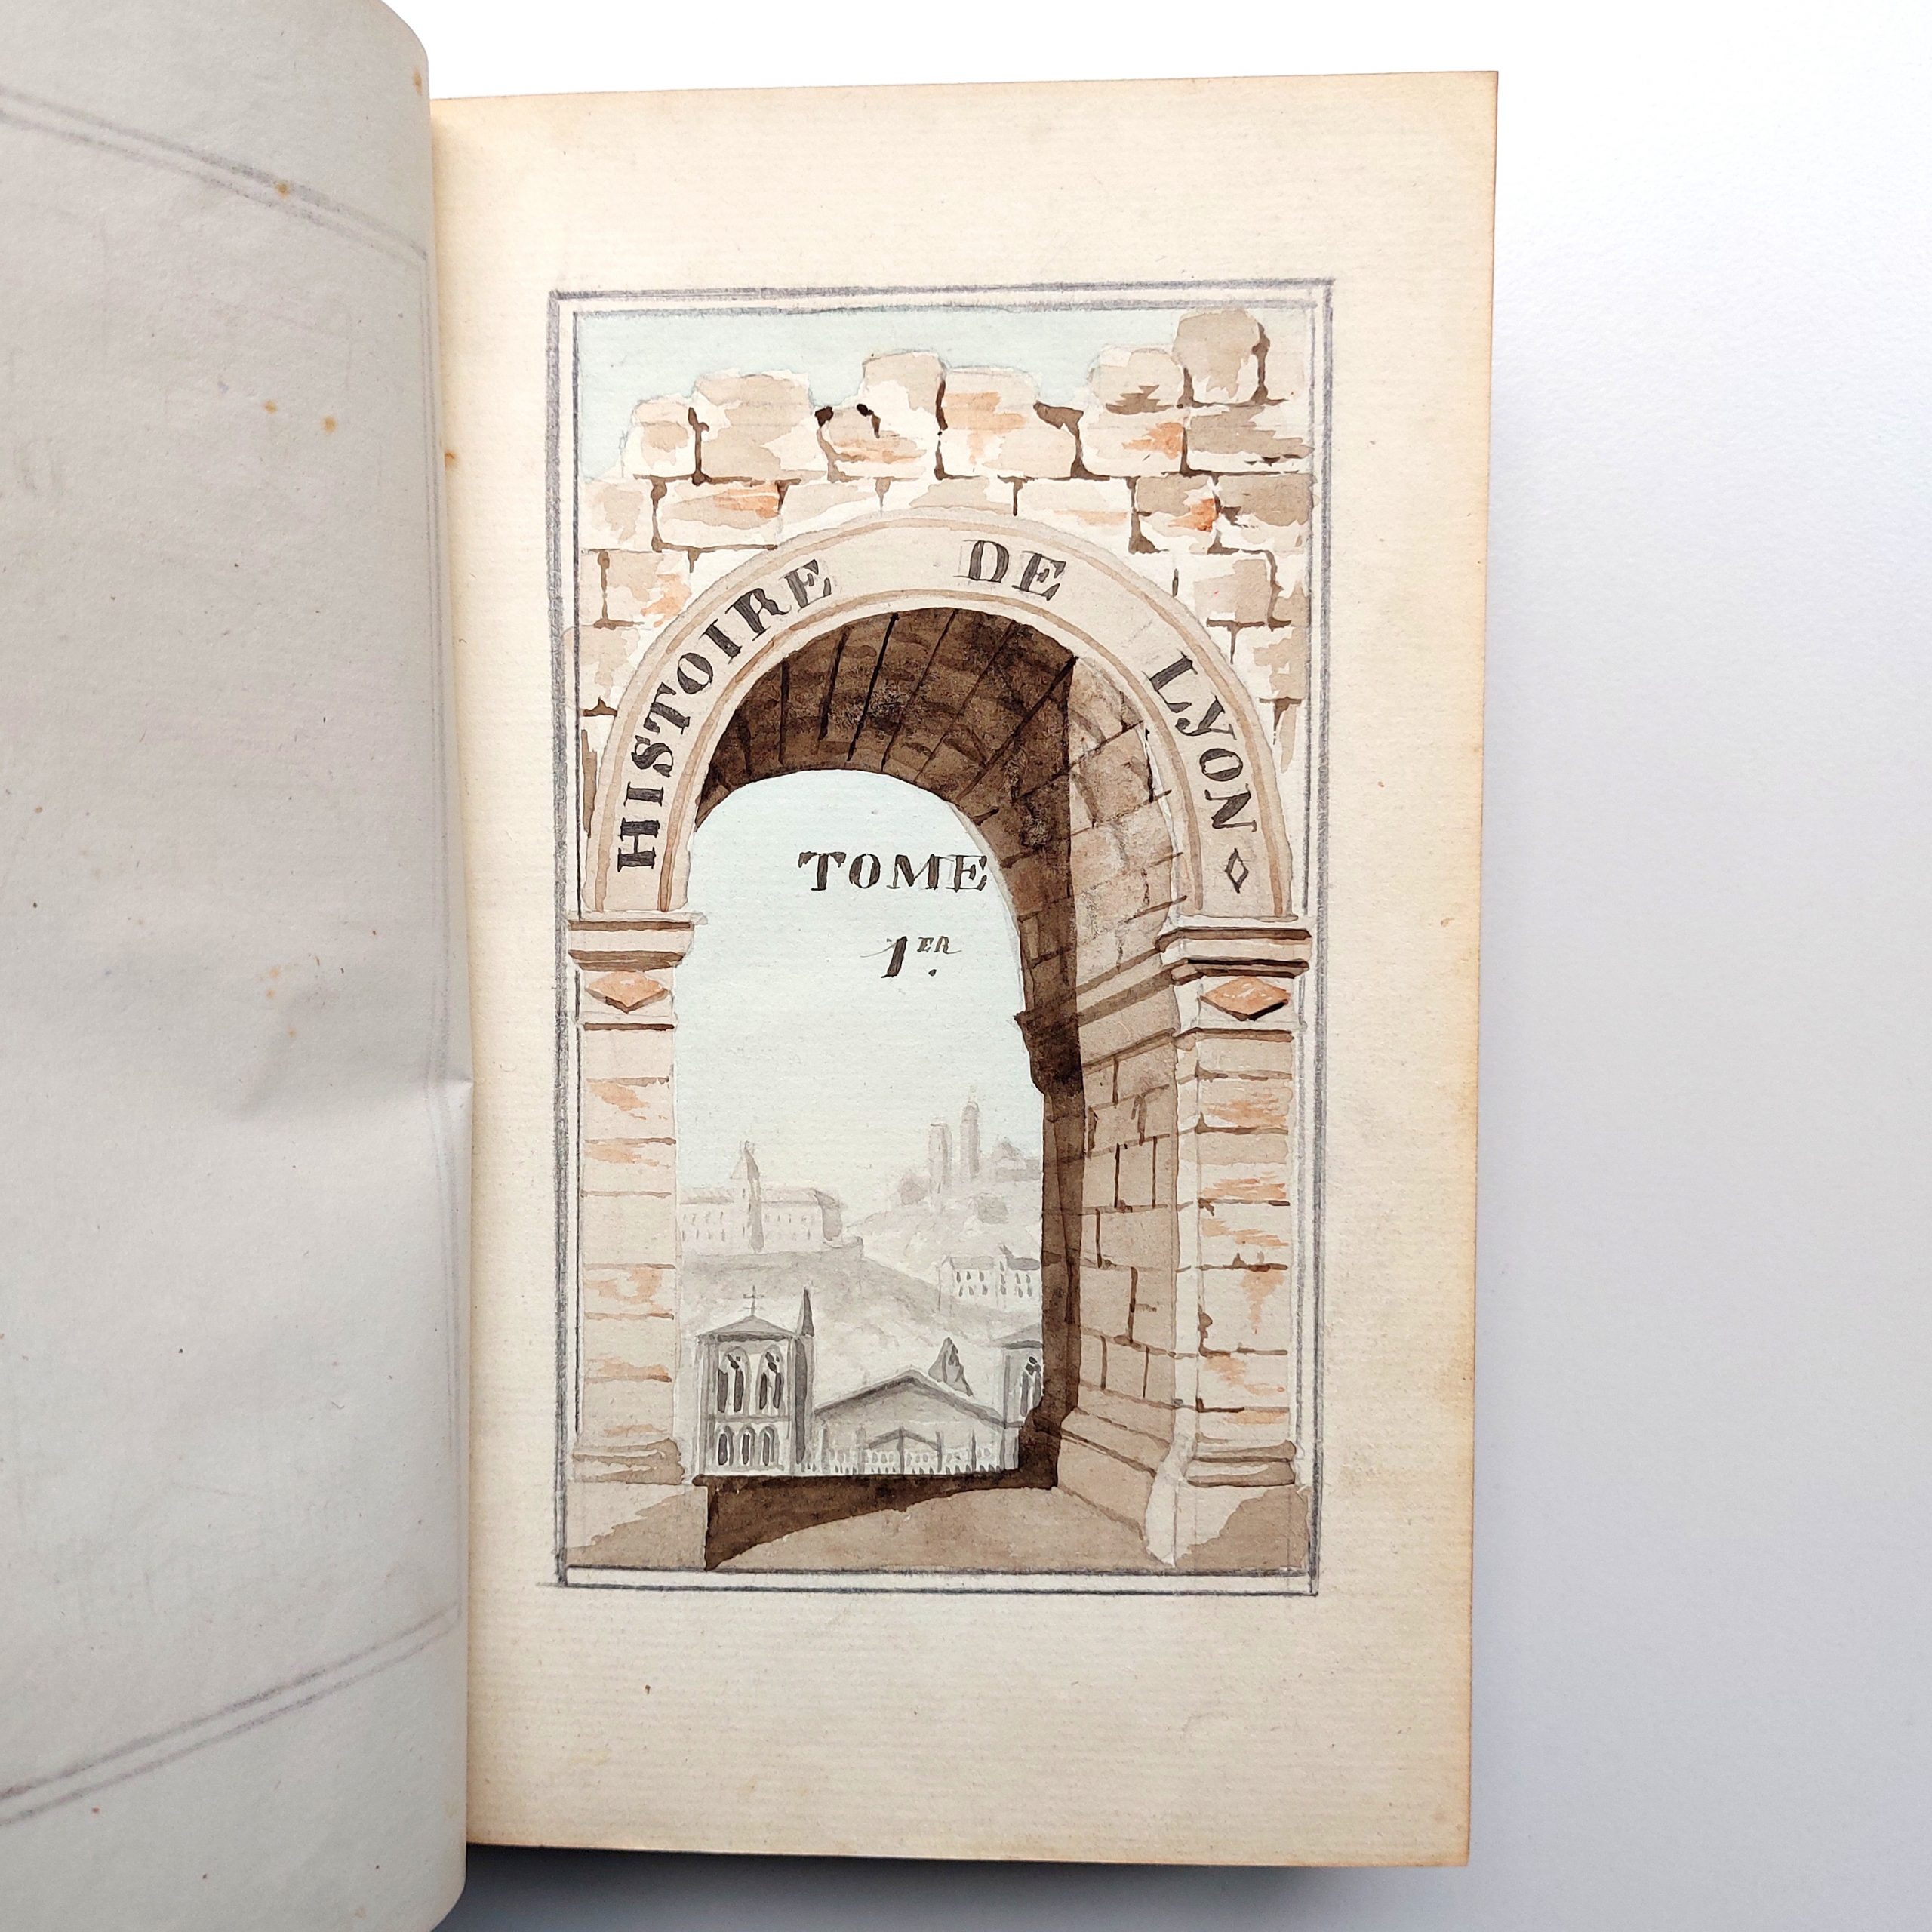 HISTOIRE DE LYON
TOME
1ER.